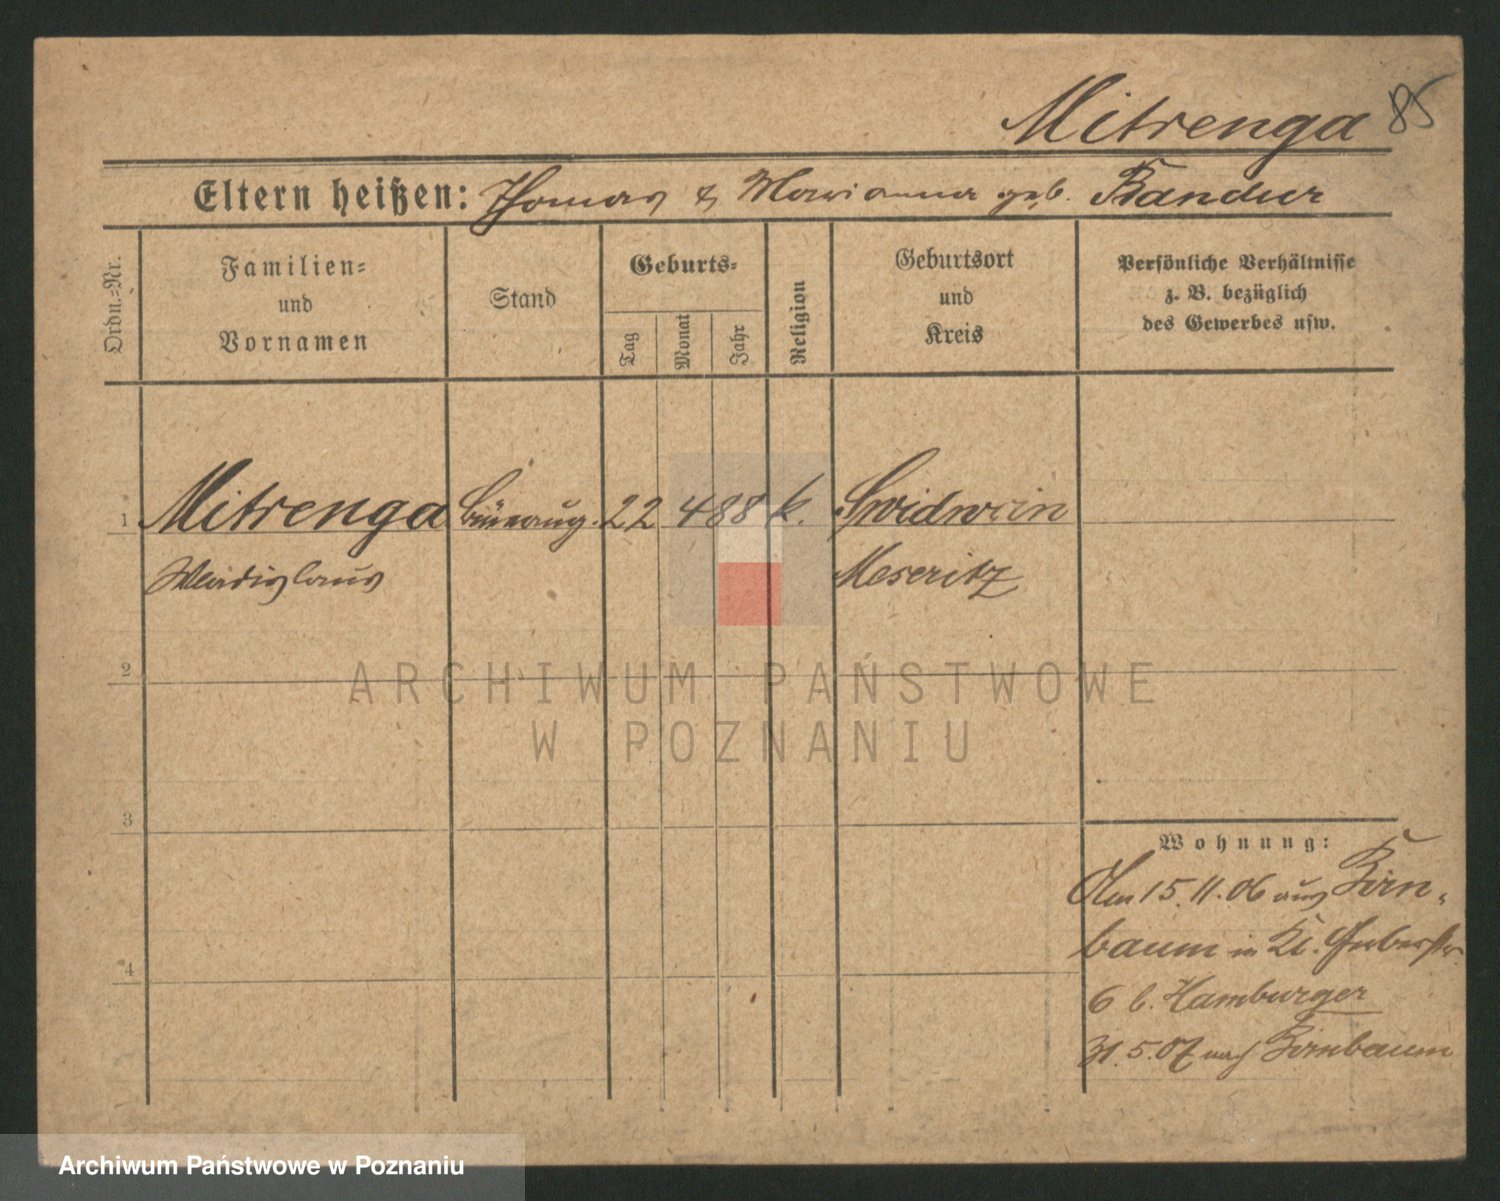 Mitrenga 85
Eltern heißen: Thomas & Marianna geb. Bandur
Ordn.-Nr.
Familien-
und
Vornamen
Stand
Geburts-
Tag
Monat
Jahr
Religion
Geburtsort
und
Kreis
Persönliche Verhältnisse
z. B. bezüglich
des Gewerbes usw.
1 Mitrenga 22 4 88 k.
Wladislaus Meseritz
2
ARCHIWUM PAŃSTWOWE
W POZNANIU
3
Wohnung:
Am 15.11.06 aus Birn-
baum in Kl. Gerberstr.
4
6 b. Hamburger
31.5.07 nach Birnbaum
Archiwum Państwowe w Poznaniu